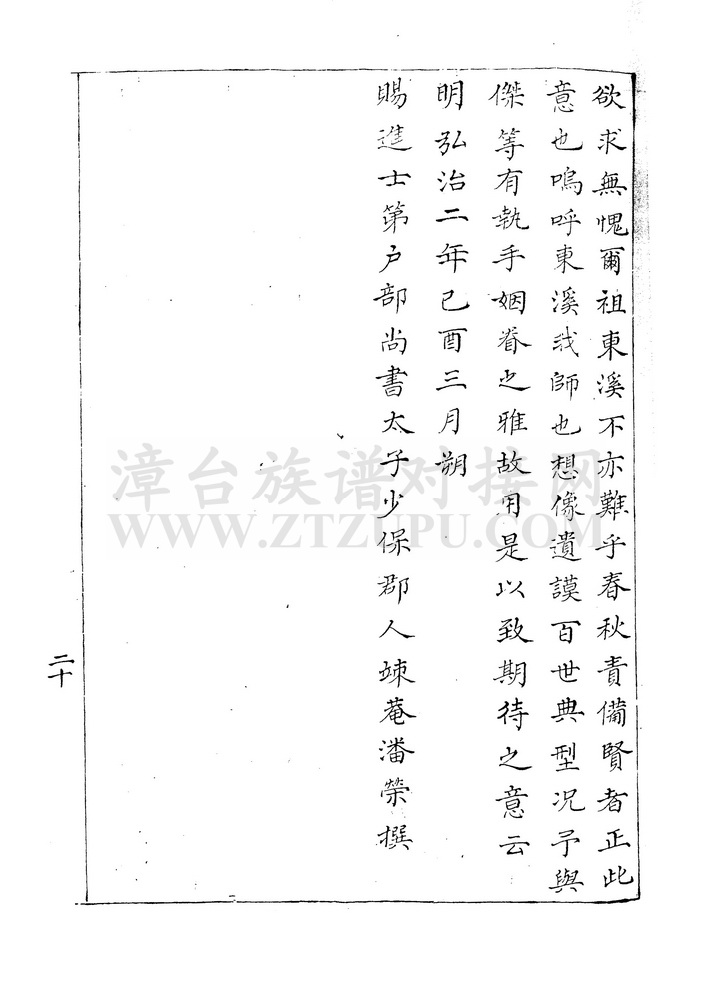 欲求無愧爾祖東溪不亦難乎春秋責備賢者正此
意也嗚呼東溪我師也想像遺謨百世典型况予與
傑等有執手姻眷之雅故用是以致期待之意云
明弘治二年己酉三月朔
賜進士第户部尚書太子少保郡人竦菴潘荣撰
二十
漳台族谱对接网
WWW.ZTZUPU.COM